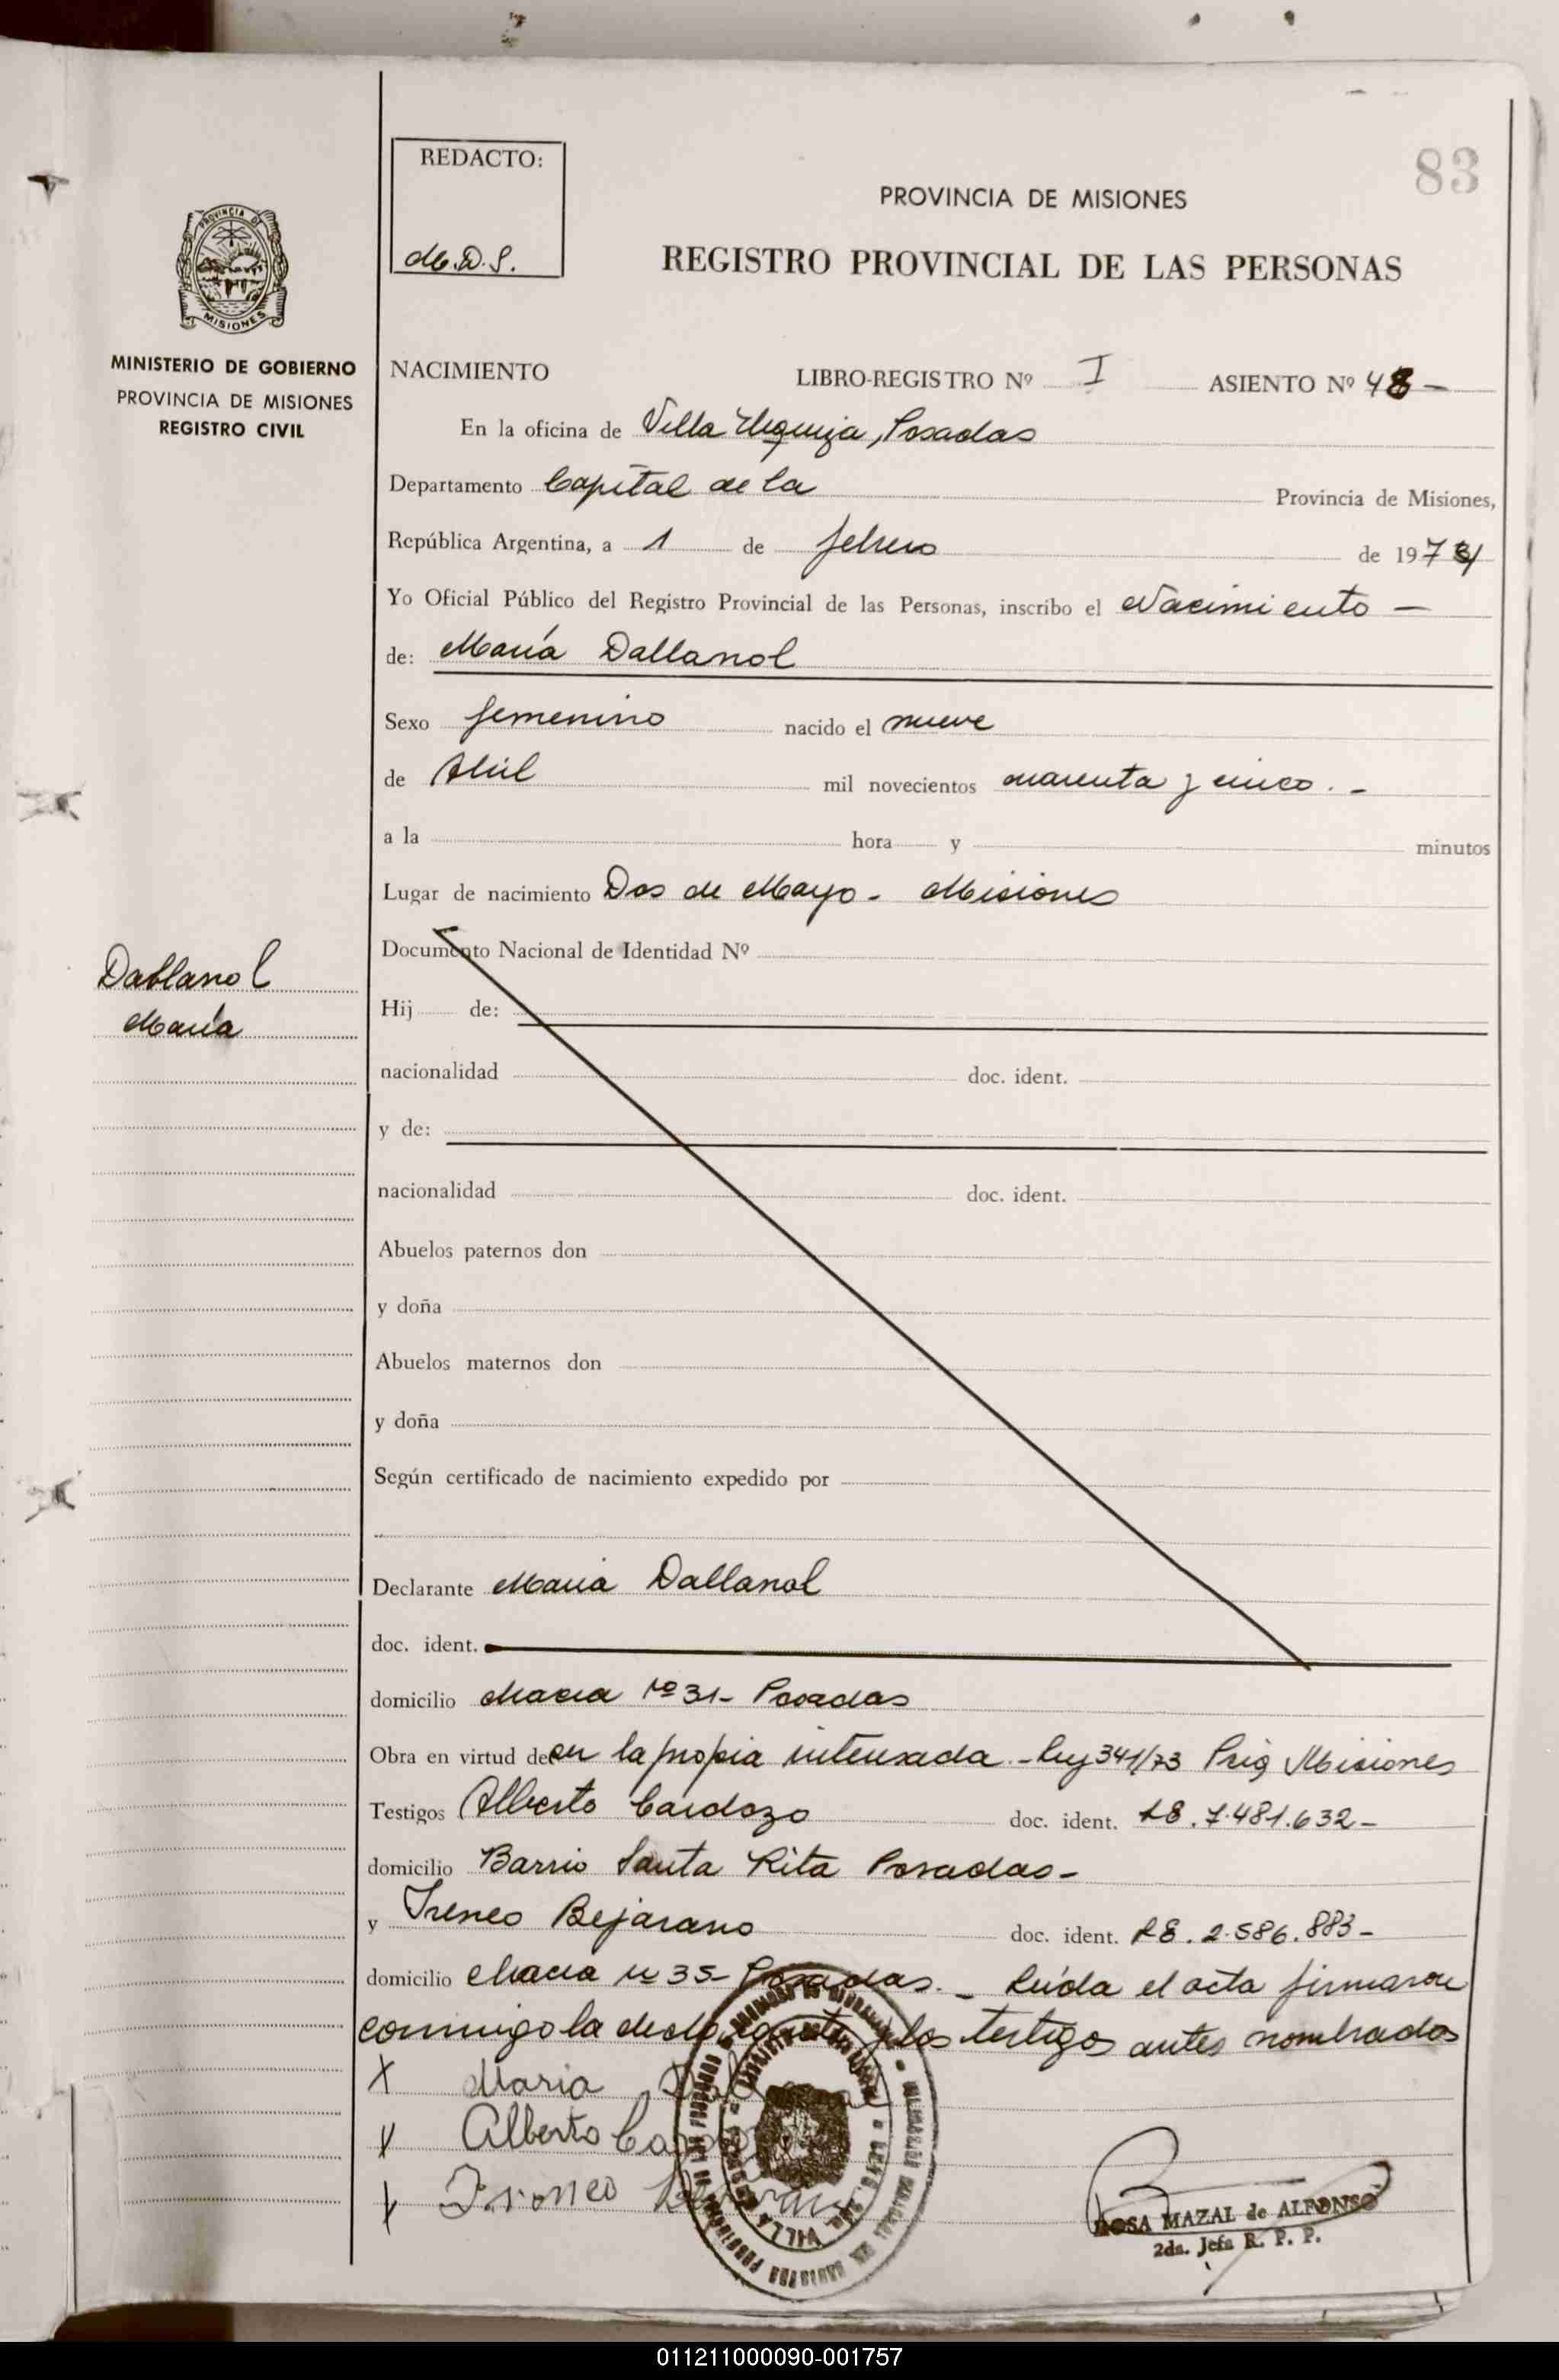 83
REDACTO:
M.D.S.
PROVINCIA DE MISIONES
REGISTRO PROVINCIAL DE LAS PERSONAS
PROVINCIA DE
MISIONES
MINISTERIO DE GOBIERNO
PROVINCIA DE MISIONES
REGISTRO CIVIL
NACIMIENTO LIBRO-REGISTRO Nº I ASIENTO Nº 48 -
En la oficina de Villa Urquiza, Posadas
Departamento Capital de la Provincia de Misiones,
República Argentina, a 1 de febrero de 197
Yo Oficial Público del Registro Provincial de las Personas, inscribo el Nacimiento -
de: María Dallanol
Sexo femenino nacido el nueve
de Abril mil novecientos cuarenta y cinco. -
a la hora y minutos
Lugar de nacimiento Dos de Mayo - Misiones
Dallanol
María
Documento Nacional de Identidad Nº
Hij de:
nacionalidad doc. ident.
y de:
nacionalidad doc. ident.
Abuelos paternos don
y doña
Abuelos maternos don
y doña
Según certificado de nacimiento expedido por
Declarante María Dallanol
doc. ident.
domicilio chacra Nº 31- Posadas
Obra en virtud de la propia interesada - Ley 341/73 Misiones
Testigos Alberto Cardozo doc. ident. 7.481.632-
domicilio Barrio Santa Rita Posadas-
y Ireneo Bejarano doc. ident. 2.586.883-
domicilio chacra Nº 35- Posadas. - Leída el acta firmaron
conmigo la declarante y los testigos antes nombrados
X Maria
Alberto
ROSA MAZAL de ALFONSO
2da. Jefa R. P. P.
011211000090-001757